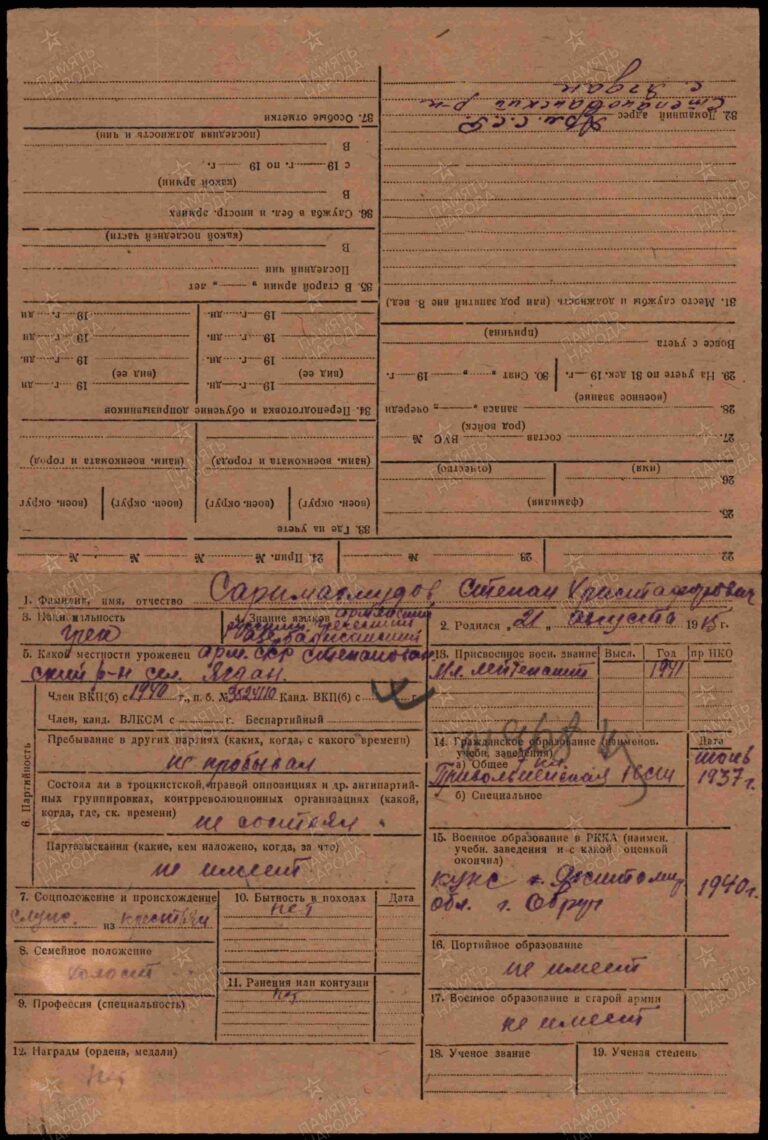 32. Домашний адрес Арм. С.С.Р.
Степанованский р-н
с. Ягдан
31. Место службы и должность (или род занятий вне В. вед.)
Вовсе с учета
(причина)
29. На учете по 31 дек. 19 г. 30. Снят „ „ 19 г.
(военное звание)
28. запаса „ „ очереди
(род войск)
27. состав ВУС №
(имя) (отчество)
26
(фамилия)
25.
37. Особые отметки
(последняя должность и чин)
В
с 19 г. по 19 г.
(какой армии)
В
36. Служба в бел. и иностр. армиях
(какой последней части)
В
Последний чин
35. В старой армии „ „ лет
19 г. дн. 19 г. дн
19 г. дн. 19 г. дн
(вид ее) (вид ее)
19 г. дн. 19 г. дн
19 г. дн. 19 г. дн
34. Переподготовка и обучение допризывников
(наим. военкомата и города) (наим. военкомата и город)
(воен. округ) (воен. округ) (воен. округ) (воен. округ)
33. Где на учете
22 № 23 № 24. Прип. № № № №
1. Фамилия, имя, отчество Саримахмудов Степан Христафорович
3. Национальность
грек
4. Знание языков армянский
русский греческий
азербайджанский
2. Родился „21 „ августа 1915 г.
5. Какой местности уроженец арм. ССР Степанован
ский р-н сел. Ягдан.
13. Присвоенное воен. звание Высл. Год пр НКО
Мл. лейтенант 1941
6. Партийность
Член ВКП(б) с 1940 г., п. б. № 3524110 Канд. ВКП(б) с г.
Член, канд. ВЛКСМ с г. Беспартийный
Пребывание в других партиях (каких, когда, с какого времени)
не пребывал
Состоял ли в троцкистской, правой оппозициях и др. антипартий-
ных группировках, контрреволюционных организациях (какой,
когда, где, ск. времени)
не состоял
Партвзыскания (какие, кем наложено, когда, за что)
не имеет
14. Гражданское образование (наименов.
учебн. заведения)
а) Общее 7 кл.
Привольненская НСШ
Дата
июнь
1937 г.
б) Специальное
15. Военное образование в РККА (наимен.
учебн. заведения и с какой оценкой
окончил)
КУНС
обл. г. Овруч
1940 г.
7. Соцположение и происхождение
служ. из крестьян
8. Семейное положение
холост
9. Профессия (специальность)
10. Бытность в походах Дата
нет
11. Ранения или контузии
нет
12. Награды (ордена, медали)
Нет
16. Портийное образование
не имеет
17. Военное образование в старой армии
не имеет
18. Ученое звание 19. Ученая степень
ПАМЯТЬ
НАРОДА